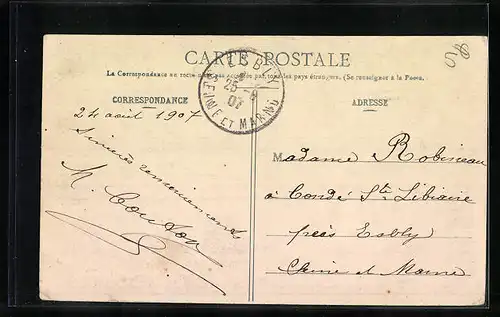 58
CARTE POSTALE
La Correspondance au recto n'est pas acceptée par tous les pays étrangers. (Se renseigner à la Poste).
ESBLY
25 -8
07
SEINE ET MARNE
CORRESPONDANCE
ADRESSE
24 août 1907
Sincères remerciements
M.
Madame Robineau
à Condé Ste Libiaire
près Esbly
Seine et Marne